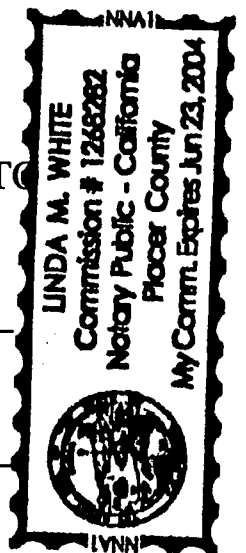 NNA1
LINDA M. WHITE
Commission # 1268282
Notary Public - California
Placer County
My Comm. Expires Jun 23, 2004
NNA1